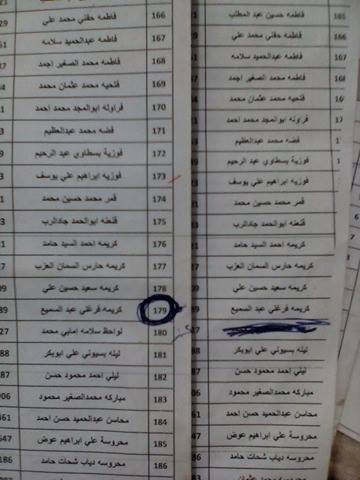 فاطمه حسين عبد المطلب
فاطمه حفني محمد علي
فاطمه عبدالحميد سلامه
فاطمه محمد الصغير احمد
فتحيه محمد عثمان محمد
فراوله ابوالمجد محمد احمد
فضه محمد عبدالعظيم
فوزية بسطاوي عبد الرحيم
فوزيه ابراهيم علي يوسف
قمر محمد حسين محمد
ابوالحمد جادالرب
كريمه احمد السيد حامد
كريمه حارس السمان العزب
كريمه سعيد حسين علي
كريمه فرغلي عبد السميع
ليله بسيوني علي ابوبكر
ليلي احمد محمود حسن
مباركه محمدالصغير محمود
محاسن عبدالحميد حسن احمد
محروسة علي ابراهيم عوض
محروسه دياب شحات حامد
166 فاطمه حفني محمد علي
167 فاطمه عبدالحميد سلامه
168 فاطمه محمد الصغير احمد
169 فتحيه محمد عثمان محمد
170 فراوله ابوالمجد محمد احمد
171 فضه محمد عبدالعظيم
172 فوزية بسطاوي عبد الرحيم
173 فوزيه ابراهيم علي يوسف
174 قمر محمد حسين محمد
175 ابوالحمد جادالرب
176 كريمه احمد السيد حامد
177 كريمه حارس السمان العزب
178 كريمه سعيد حسين علي
179 كريمه فرغلي عبد السميع
180 لواحظ سلامه إمابي محمد
181 ليله بسيوني علي ابوبكر
182 ليلي احمد محمود حسن
183 مباركه محمدالصغير محمود
184 محاسن عبدالحميد حسن احمد
185 محروسة علي ابراهيم عوض
186 محروسه دياب شحات حامد